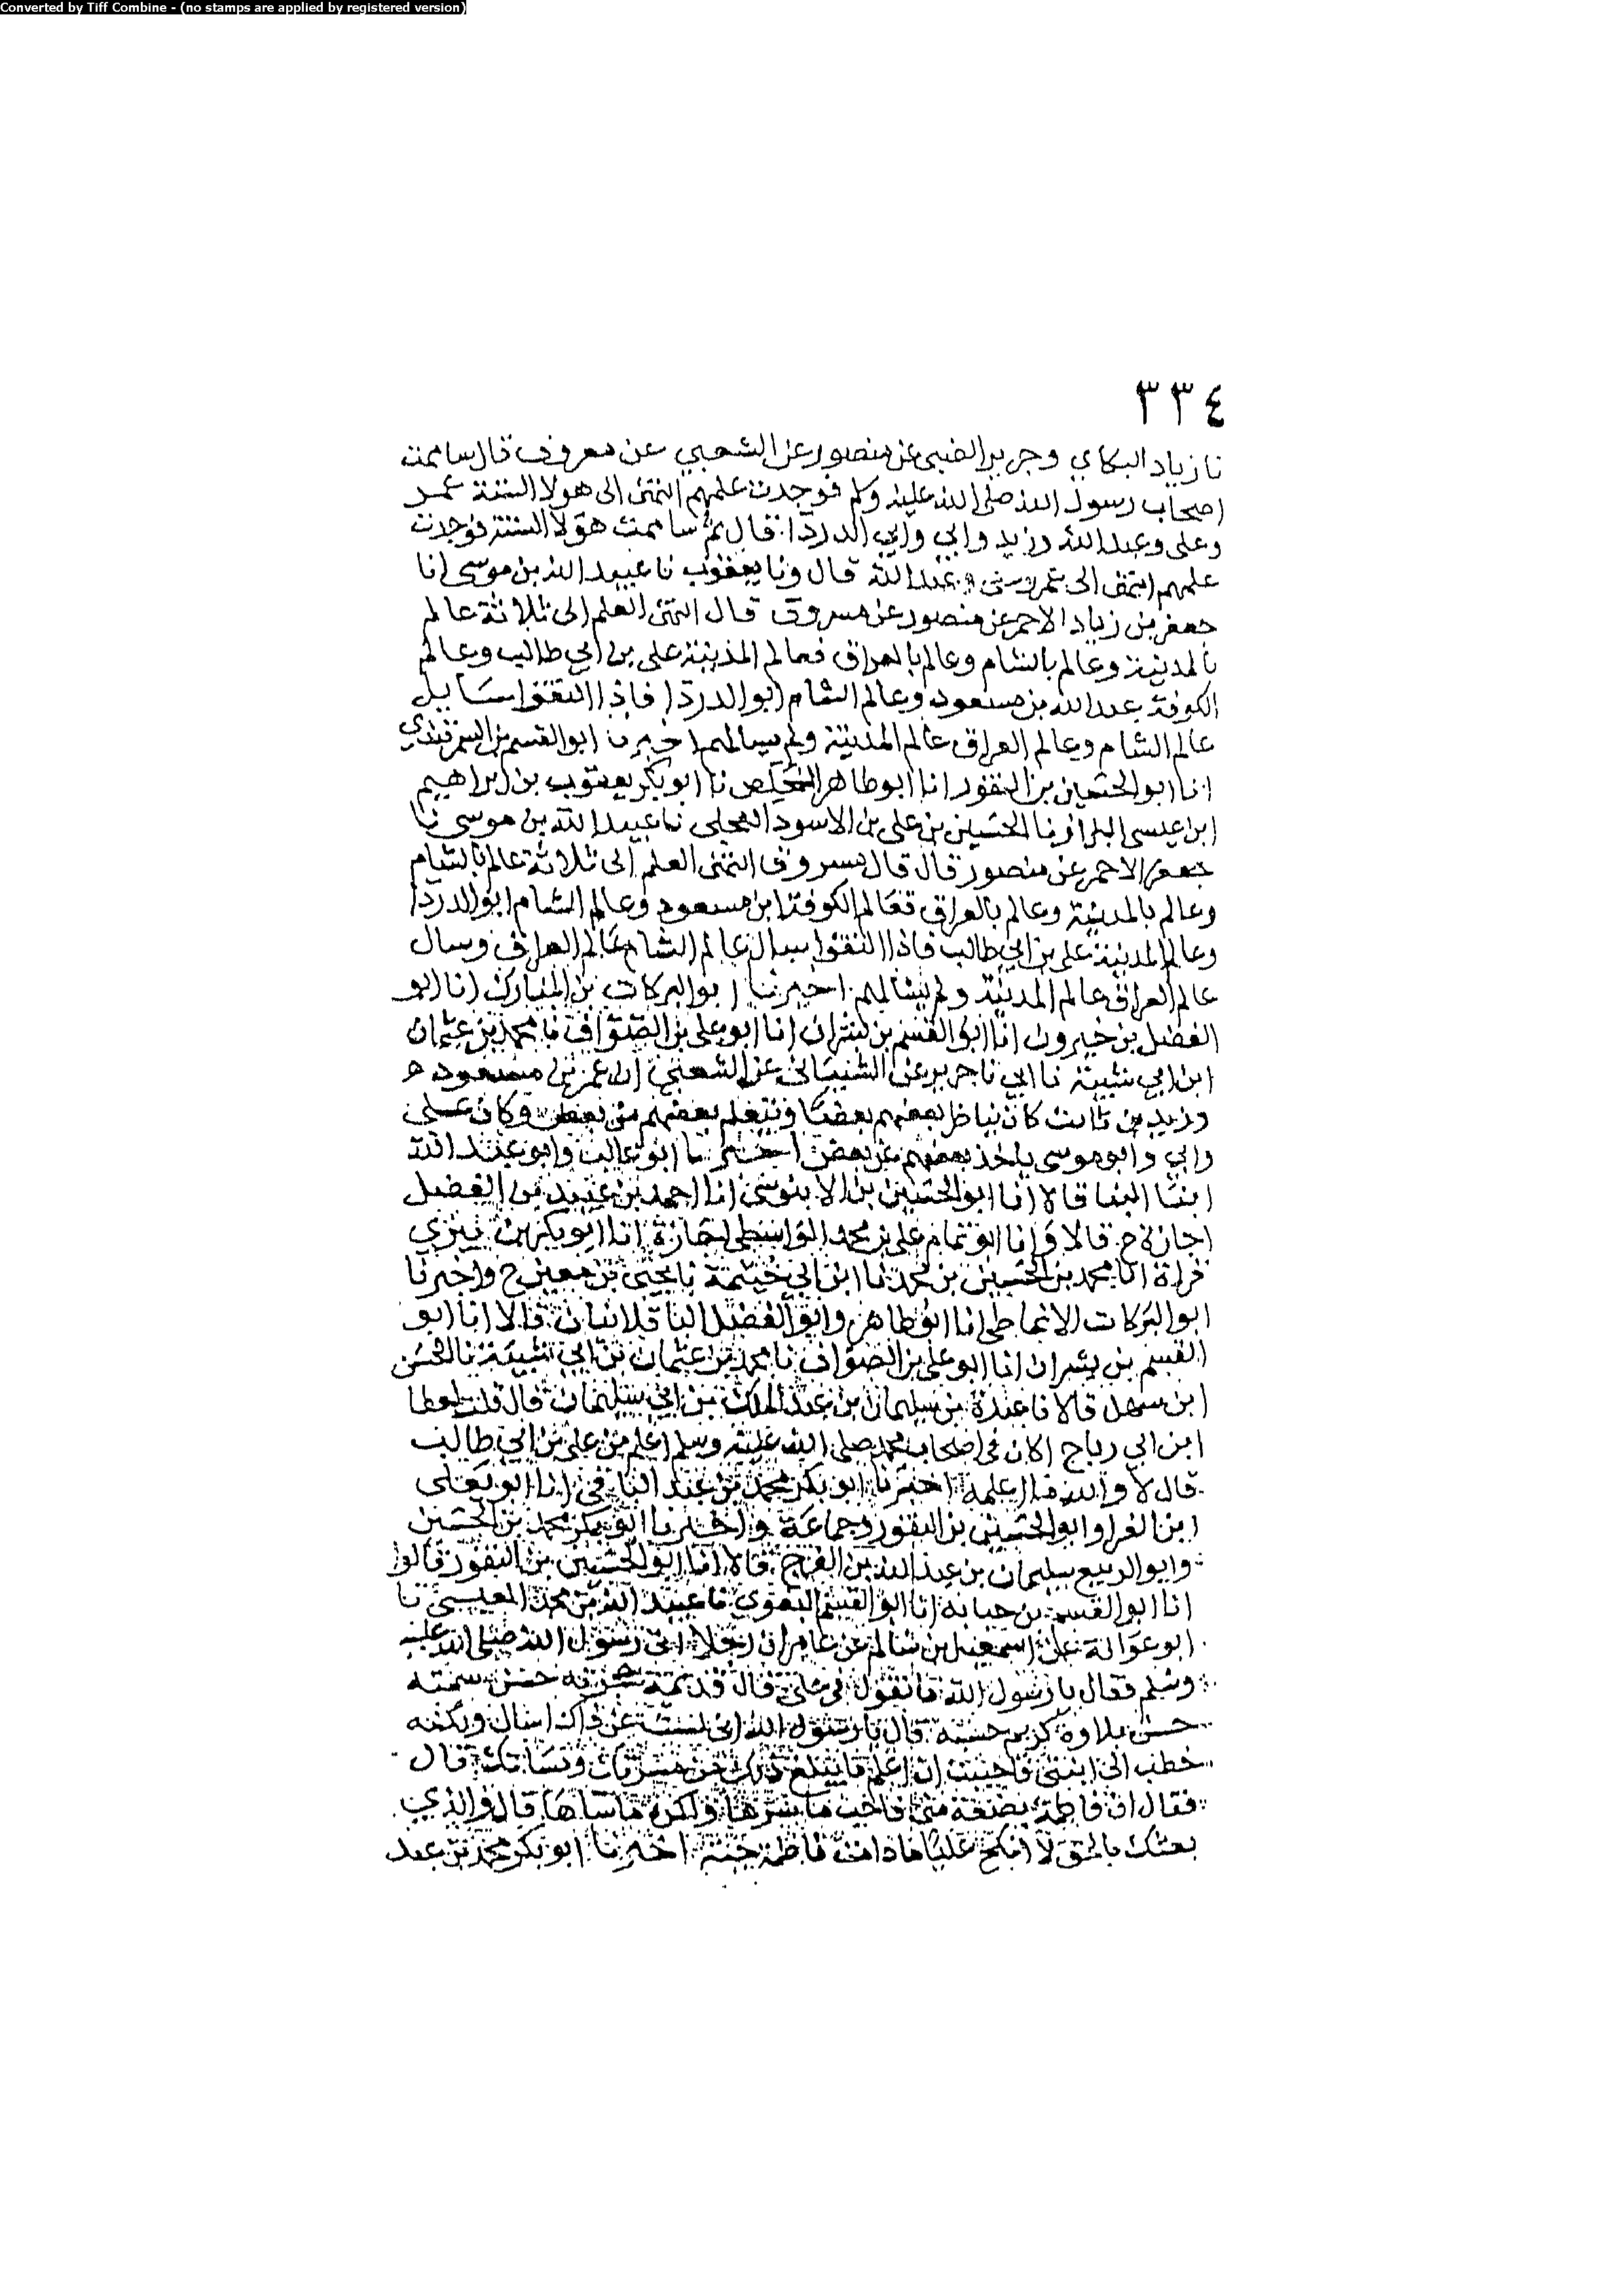 Converted by Tiff Combine - (no stamps are applied by registered version)
٣٣٤
نا زياد البكاي وجرير الضبي عن منصور عن الشعبي عن معروف قال ساممت
اصحاب رسول الله صلى الله عليه وسلم فوجدت علمهم انتهى الى هولا الستة عمر
وعلى وعبد الله وزيد وابي وابي الدردا قال ثم ساممت هولا الستة فوجدت
علمهم انتهى الى عبد الله قال ونا يعقوب نا عبيد الله بن موسى انا
جعفر بن زياد الاحمر عن منصور عن مسروق قال انتهى العلم الى ثلاثة عالم
بالمدينة وعالم بالشام وعالم بالعراق فعالم المدينة على بن ابي طالب وعالم
الكوفة عبد الله بن مسعود وعالم الشام ابو الدردا فاذا التقوا سايل
عالم الشام وعالم العراق عالم المدينة ولم يسالهم اخبرنا ابو القسم بن السمرقندي
انا ابو الحسين بن النقور انا ابو طاهر المخلص نا ابو بكر يعقوب بن ابراهيم
ابن عيسى البزاز نا الحسين بن على بن الاسود العجلى نا عبيد الله بن موسى نا
جعفر الاحمر عن منصور قال قال مسروق انتهى العلم الى ثلاثة عالم بالشام
وعالم بالمدينة وعالم بالعراق فعالم الكوفة ابن مسعود وعالم الشام ابو الدردا
وعالم المدينة على بن ابي طالب فاذا التقوا سال عالم الشام عالم العراق وسال
عالم العراق عالم المدينة ولم يسالهم اخبرنا ابو البركات بن المبارك انا ابو
الفضل بن خيرون انا ابو القسم بن بشران انا ابو على بن الصواف نا محمد بن عثمان
ابن ابي شيبة نا ابي نا جرير عن الشيباني عن الشعبي ان عمر بن مسعود
وزيد بن ثابت كان يناظر بعضهم بعضا ويتعلم بعضهم من بعض وكان على
وابي وابو موسى ياخذ بعضهم عن بعض نا ابو غالب وابو عبد الله
ابنا البنا قالا انا ابو الحسين بن الابنوسى انا احمد بن عبيد بن الفضل
اجازة ح قالا وانا ابو تمام على بن محمد الواسطى اجازة انا ابو بكر بن بيري
قراة انا محمد بن الحسين بن محمد نا ابن ابي خيثمة نا يحيى بن معين ح واخبرنا
ابو البركات الانماطى انا ابو طاهر وابو الفضل الباقلانيان قالا انا ابو
القسم بن بشران انا ابو على بن الصواف نا محمد بن عثمان بن ابي شيبة نا الحسن
ابن سهل قالا نا عبدة بن سليمان بن عبد الملك بن ابي سليمان قال قلت لعطا
ابن ابي رباح اكان فى اصحاب محمد صلى الله عليه وسلم اعلم من على بن ابي طالب
قال لا والله ما اعلمه اخبرنا ابو بكر محمد بن عبد الباقى انا ابو يعلى
ابن الفرا وابو الحسين بن النقور وجماعة واخبرنا ابو بكر محمد بن الحسين
وابو الربيع سليمان بن عبد الله بن الفرج قالا انا ابو الحسين بن النقور قالوا
انا ابو القسم بن حبابه انا ابو القسم البغوي نا عبيد الله بن محمد العيسى نا
ابو عوانة عن اسمعيل بن سالم عن عامر ان رجلا اتى رسول الله صلى الله عليه
وسلم فقال يا رسول الله ما تقول فى على قال حسن سمته
حسن بلاوه كريم حسبه قال يا رسول الله انى لست عن ذاك اسال ولكنه
خطب الى ابنتى فاحببت ان اعلم ما يبلغ ذلك من مسرتك ومساتك قال
فقال ان فاطمة بضعة منى فاحب ما سرها واكره ما ساها قال والذي
بعثك بالحق لا انكح عليا ما دامت فاطمة حية اخبرنا ابو بكر محمد بن عبد